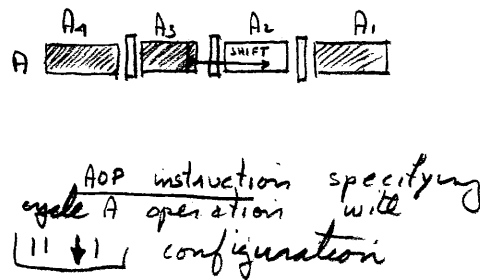 A4 A3 A2 A1
A SHIFT
AOP instruction specifying
cycle A operation with
11 ↓ 1 configuration